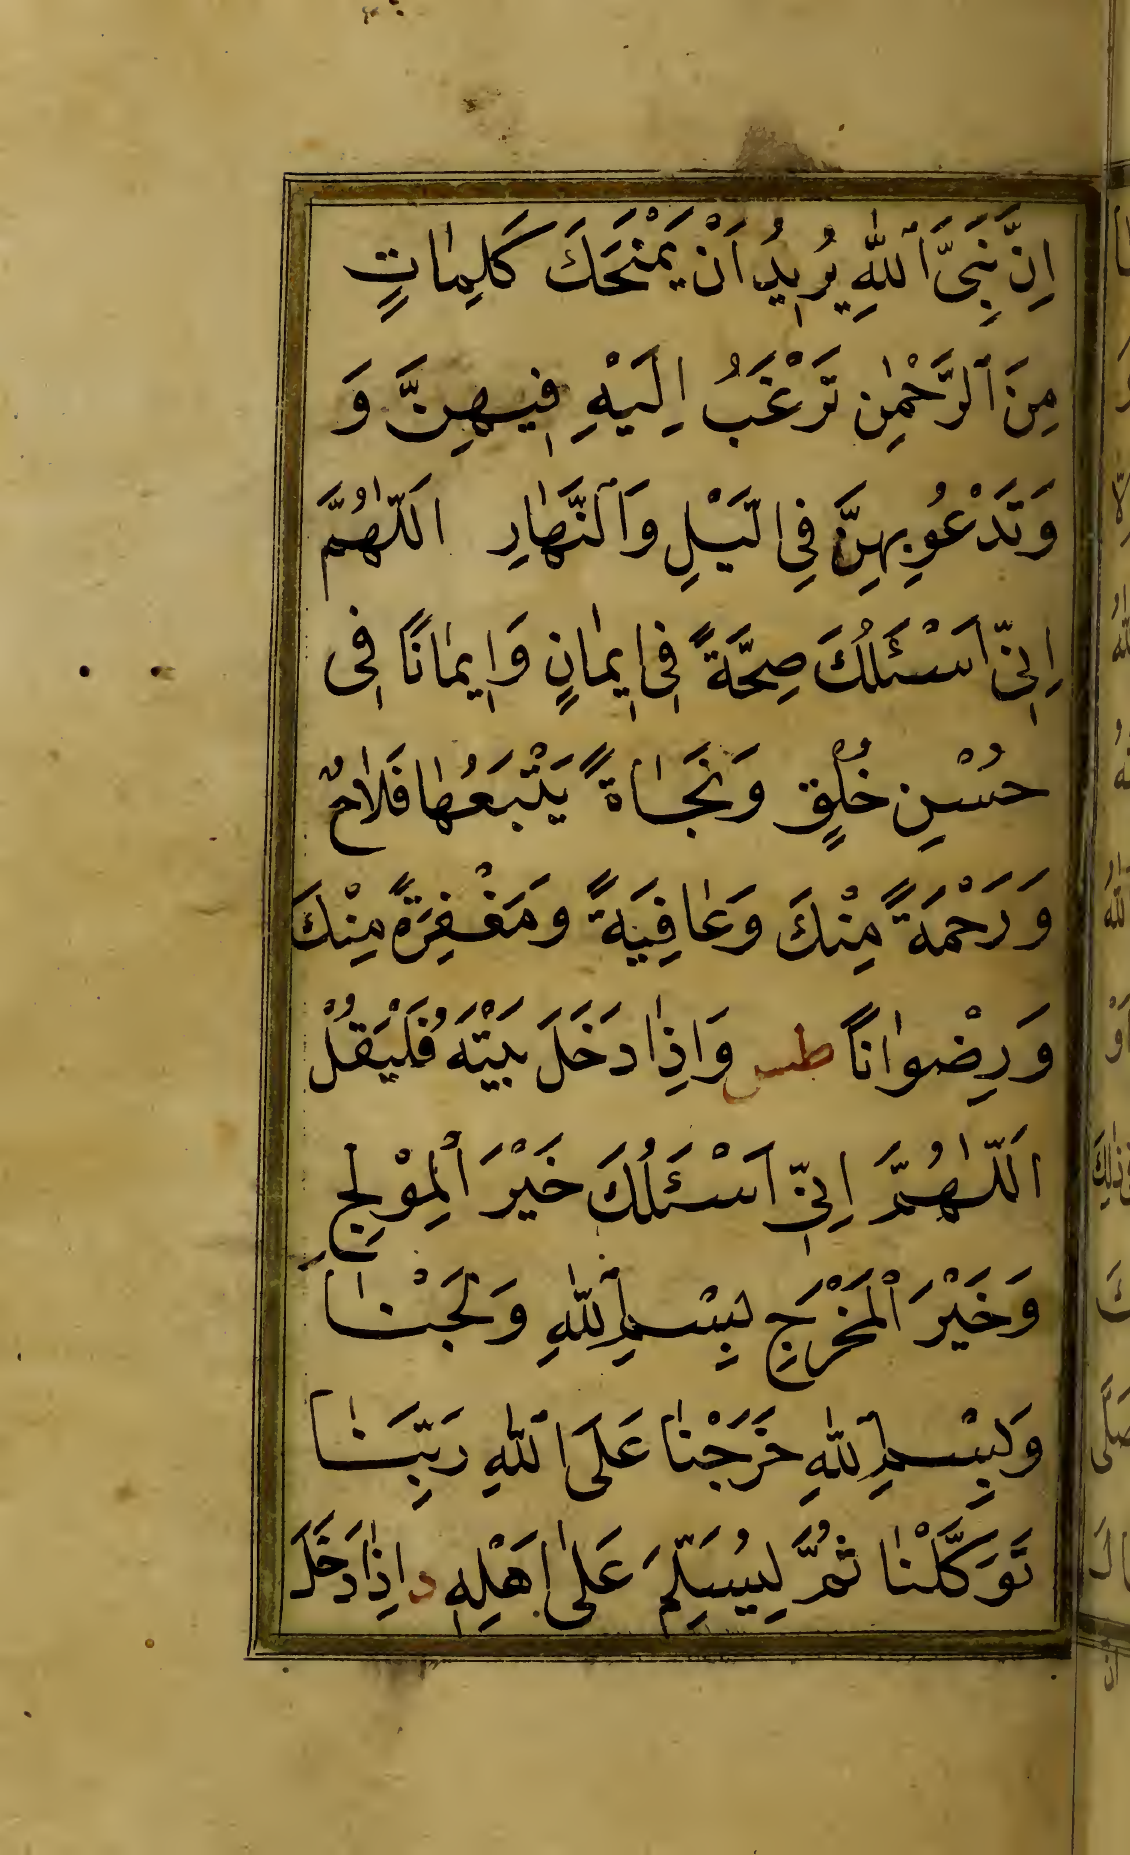 اِنَّ نَبِىَّ ٱللّٰهِ يُرِيدُ اَنْ يَمْنَحَكَ كَلِمٰاتٍ
مِنَ ٱلرَّحْمٰنِ تَرْغَبُ اِلَيْهِ فِيهِنَّ وَ
وَتَدْعُو بِهِنَّ فِى الَّيْلِ وَٱلنَّهٰارِ اَللّٰهُمَّ
اِنِّى اَسْئَلُكَ صِحَّةً فِى اِيمٰانٍ وَاِيمٰانًا فِى
حُسْنِ خُلْقٍ وَنَجٰاةً يَتْبَعُهٰا فَلٰاحٌ
وَرَحْمَةً مِنْكَ وَعٰافِيَةً وَمَغْفِرَةً مِنْكَ
وَرِضْوٰانًا طس وَاِذٰا دَخَلَ بَيْتَهُ فَلْيَقُلْ
اَللّٰهُمَّ اِنِّى اَسْئَلُكَ خَيْرَ ٱلْمَوْلِجِ
وَخَيْرَ ٱلْمَخْرَجِ بِسْمِ ٱللّٰهِ وَلَجْنٰا
وَبِسْمِ ٱللّٰهِ خَرَجْنٰا عَلَى ٱللّٰهِ رَبِّنٰا
تَوَكَّلْنٰا ثُمَّ لِيُسَلِّمَ عَلٰى اَهْلِهِ د اِذٰا دَخَلَ